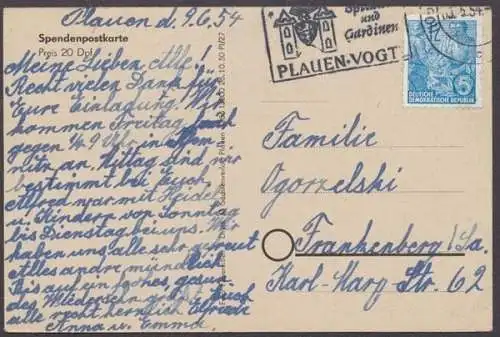 Plauen d. 9.6.54
Spendenpostkarte
Preis 20 Dpf
Meine Lieben, Alle!
Recht vielen Dank für
Eure Einladung. Wir
kommen Freitag
gegen ½9 Uhr in Chem
nitz an. Mittag sind wir
bestimmt bei Euch.
Alfred war mit Heide
u. Kindern von Sonntag
bis Dienstag bei uns. Wir
haben uns alle sehr gefreut
Alles andre mündlich
Bis auf ein frohes, gesun
des Wiedersehn grüßt Euch
alle recht herzlich Elfriede
Anna u. Emma.
Spitzen
und
Gardinen
PLAUEN-VOGTL
DEUTSCHE
DEMOKRATISCHE REPUBLIK
5
Familie
Ogorzelski
Frankenberg/Sa.
Karl-Marx Str. 62